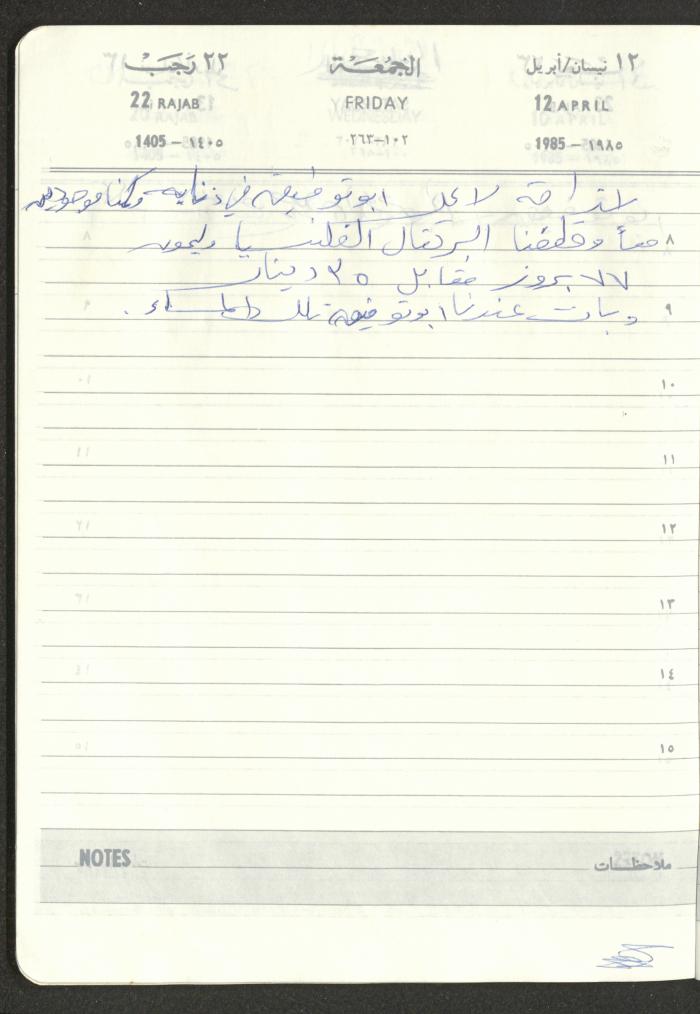 ١٢ نيسان/أبريل الجمعة ٢٢ رجب
12 APRIL FRIDAY 22 RAJAB
1985 - ١٩٨٥ ١٠٢-٢٦٣ 1405 - ١٤٠٥
استراحة لا عمل ابو توفيق في ذنابه وكنا موجودين
٨ معاً وقطفنا البرتقال الفلنسيا وليمون
٧٧ بروز مقابل ٣٥ دينار
٩ وبات عندنا ابو توفيق تلك المساء .
١٠
١١
١٢
١٣
١٤
١٥
NOTES ملاحظات